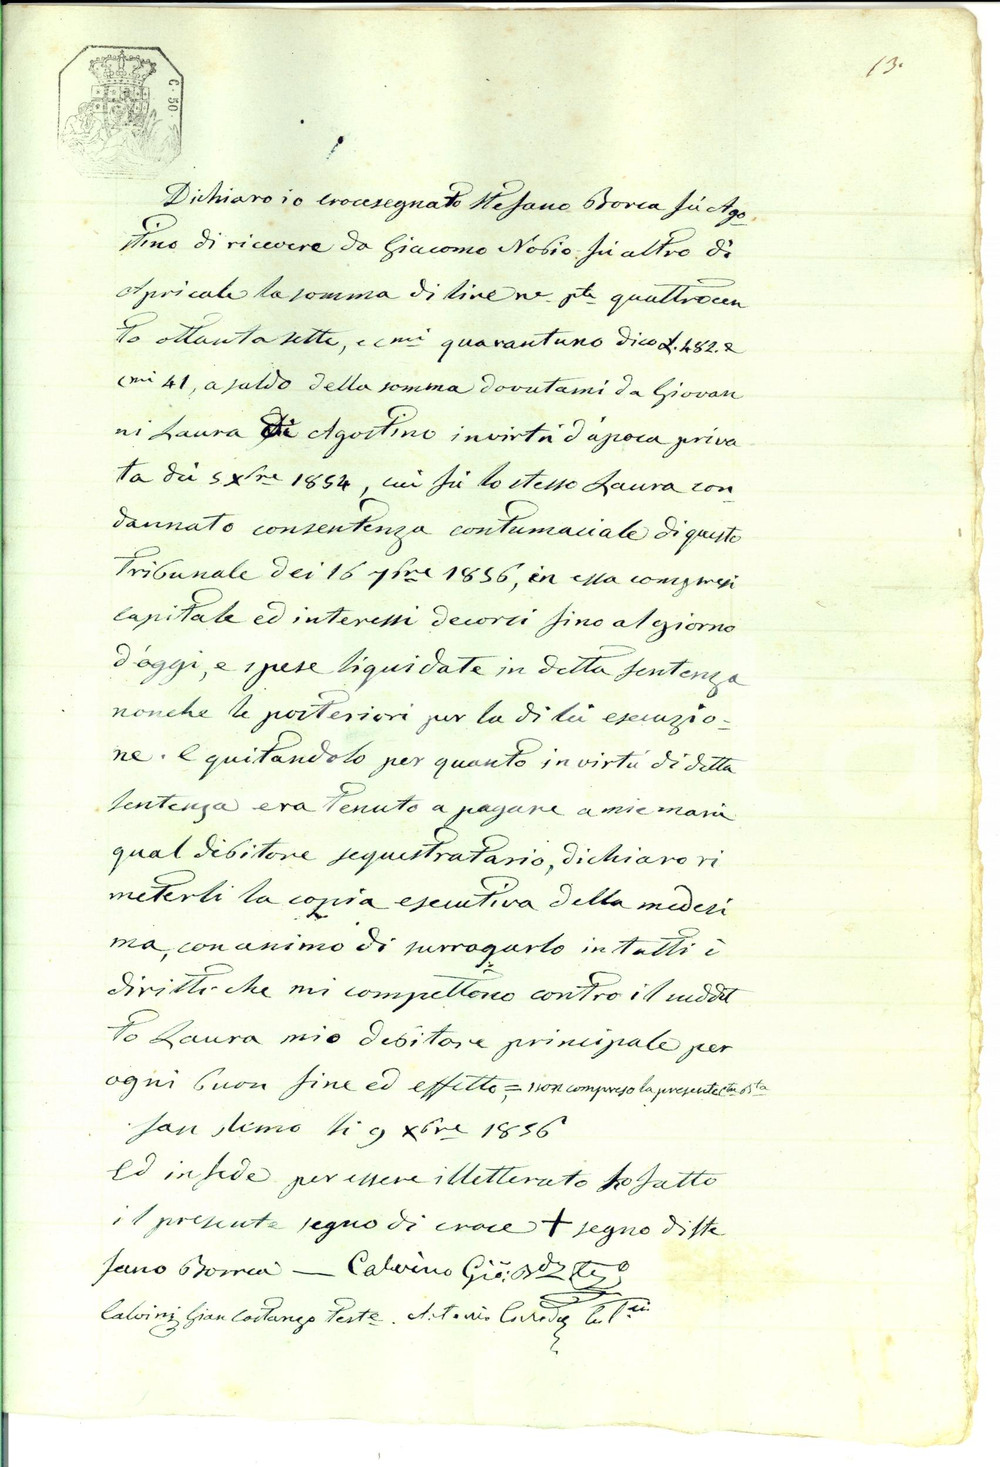 C. 50
13.
Dichiaro io crocesegnato Stefano Borea fù Ago
stino di ricevere da Giacomo Nobio fù altro di
Apricale la somma di lire ne pte quattrocen
to ottanta sette, e cmi quarantuno dico L. 482. e
cmi 41, a saldo della somma dovutami da Giovan
ni Laura di Agostino in virtù d'apoca priva
ta dei 5 xbre 1854, cui fù lo stesso Laura con
dannato con sentenza contumaciale di questo
Tribunale dei 16 7bre 1856, in essa compresi
capitale ed interessi decorsi sino al giorno
d'oggi, e spese liquidate in detta sentenza
nonche le posteriori per la di lei esecuzio-
ne. E quitandolo per quanto in virtù di detta
sentenza era tenuto a pagare a mie mani
qual debitore sequestratario, dichiaro ri
meterli la copia esecutiva della medesi
ma, con animo di surrogarlo in tutti i
diritti che mi compettono contro il suddet
to Laura mio debitore principale per
ogni buon fine ed effetto, = non compreso la presente
San Remo li 9 xbre 1856
Ed in fede per essere illetterato ho fatto
il presente segno di croce + segno di Ste
fano Borrea — Calvino Gio: Bta Teo
Calvini Gian Costanzo Teste. Antonio